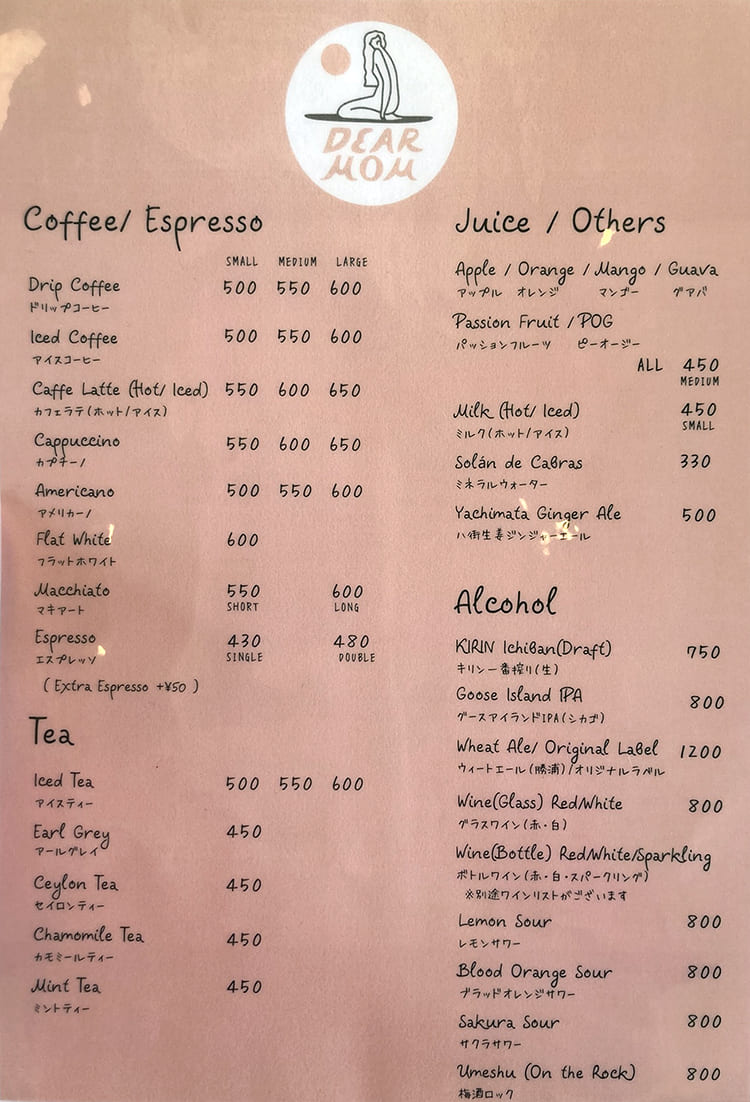 DEAR
MOM
Coffee/ Espresso
SMALL MEDIUM LARGE
Drip Coffee 500 550 600
ドリップコーヒー
Iced Coffee 500 550 600
アイスコーヒー
Caffe Latte (Hot/ Iced) 550 600 650
カフェラテ(ホット/アイス)
Cappuccino 550 600 650
カプチーノ
Americano 500 550 600
アメリカーノ
Flat White 600
フラットホワイト
Macchiato 550 600
マキアート SHORT LONG
Espresso 430 480
エスプレッソ SINGLE DOUBLE
( Extra Espresso +¥50 )
Tea
Iced Tea 500 550 600
アイスティー
Earl Grey 450
アールグレイ
Ceylon Tea 450
セイロンティー
Chamomile Tea 450
カモミールティー
Mint Tea 450
ミントティー
Juice / Others
Apple / Orange / Mango / Guava
アップル オレンジ マンゴー グアバ
Passion Fruit / POG
パッションフルーツ ピーオージー
ALL 450
MEDIUM
Milk (Hot/ Iced) 450
ミルク(ホット/アイス) SMALL
Solán de Cabras 330
ミネラルウォーター
Yachimata Ginger Ale 500
八街生姜ジンジャーエール
Alcohol
KIRIN Ichiban(Draft) 750
キリン一番搾り(生)
Goose Island IPA 800
グースアイランドIPA(シカゴ)
Wheat Ale/ Original Label 1200
ウィートエール(勝浦)/オリジナルラベル
Wine(Glass) Red/White 800
グラスワイン(赤・白)
Wine(Bottle) Red/White/Sparkling
ボトルワイン(赤・白・スパークリング)
※別途ワインリストがございます
Lemon Sour 800
レモンサワー
Blood Orange Sour 800
ブラッドオレンジサワー
Sakura Sour 800
サクラサワー
Umeshu (On the Rock) 800
梅酒ロック